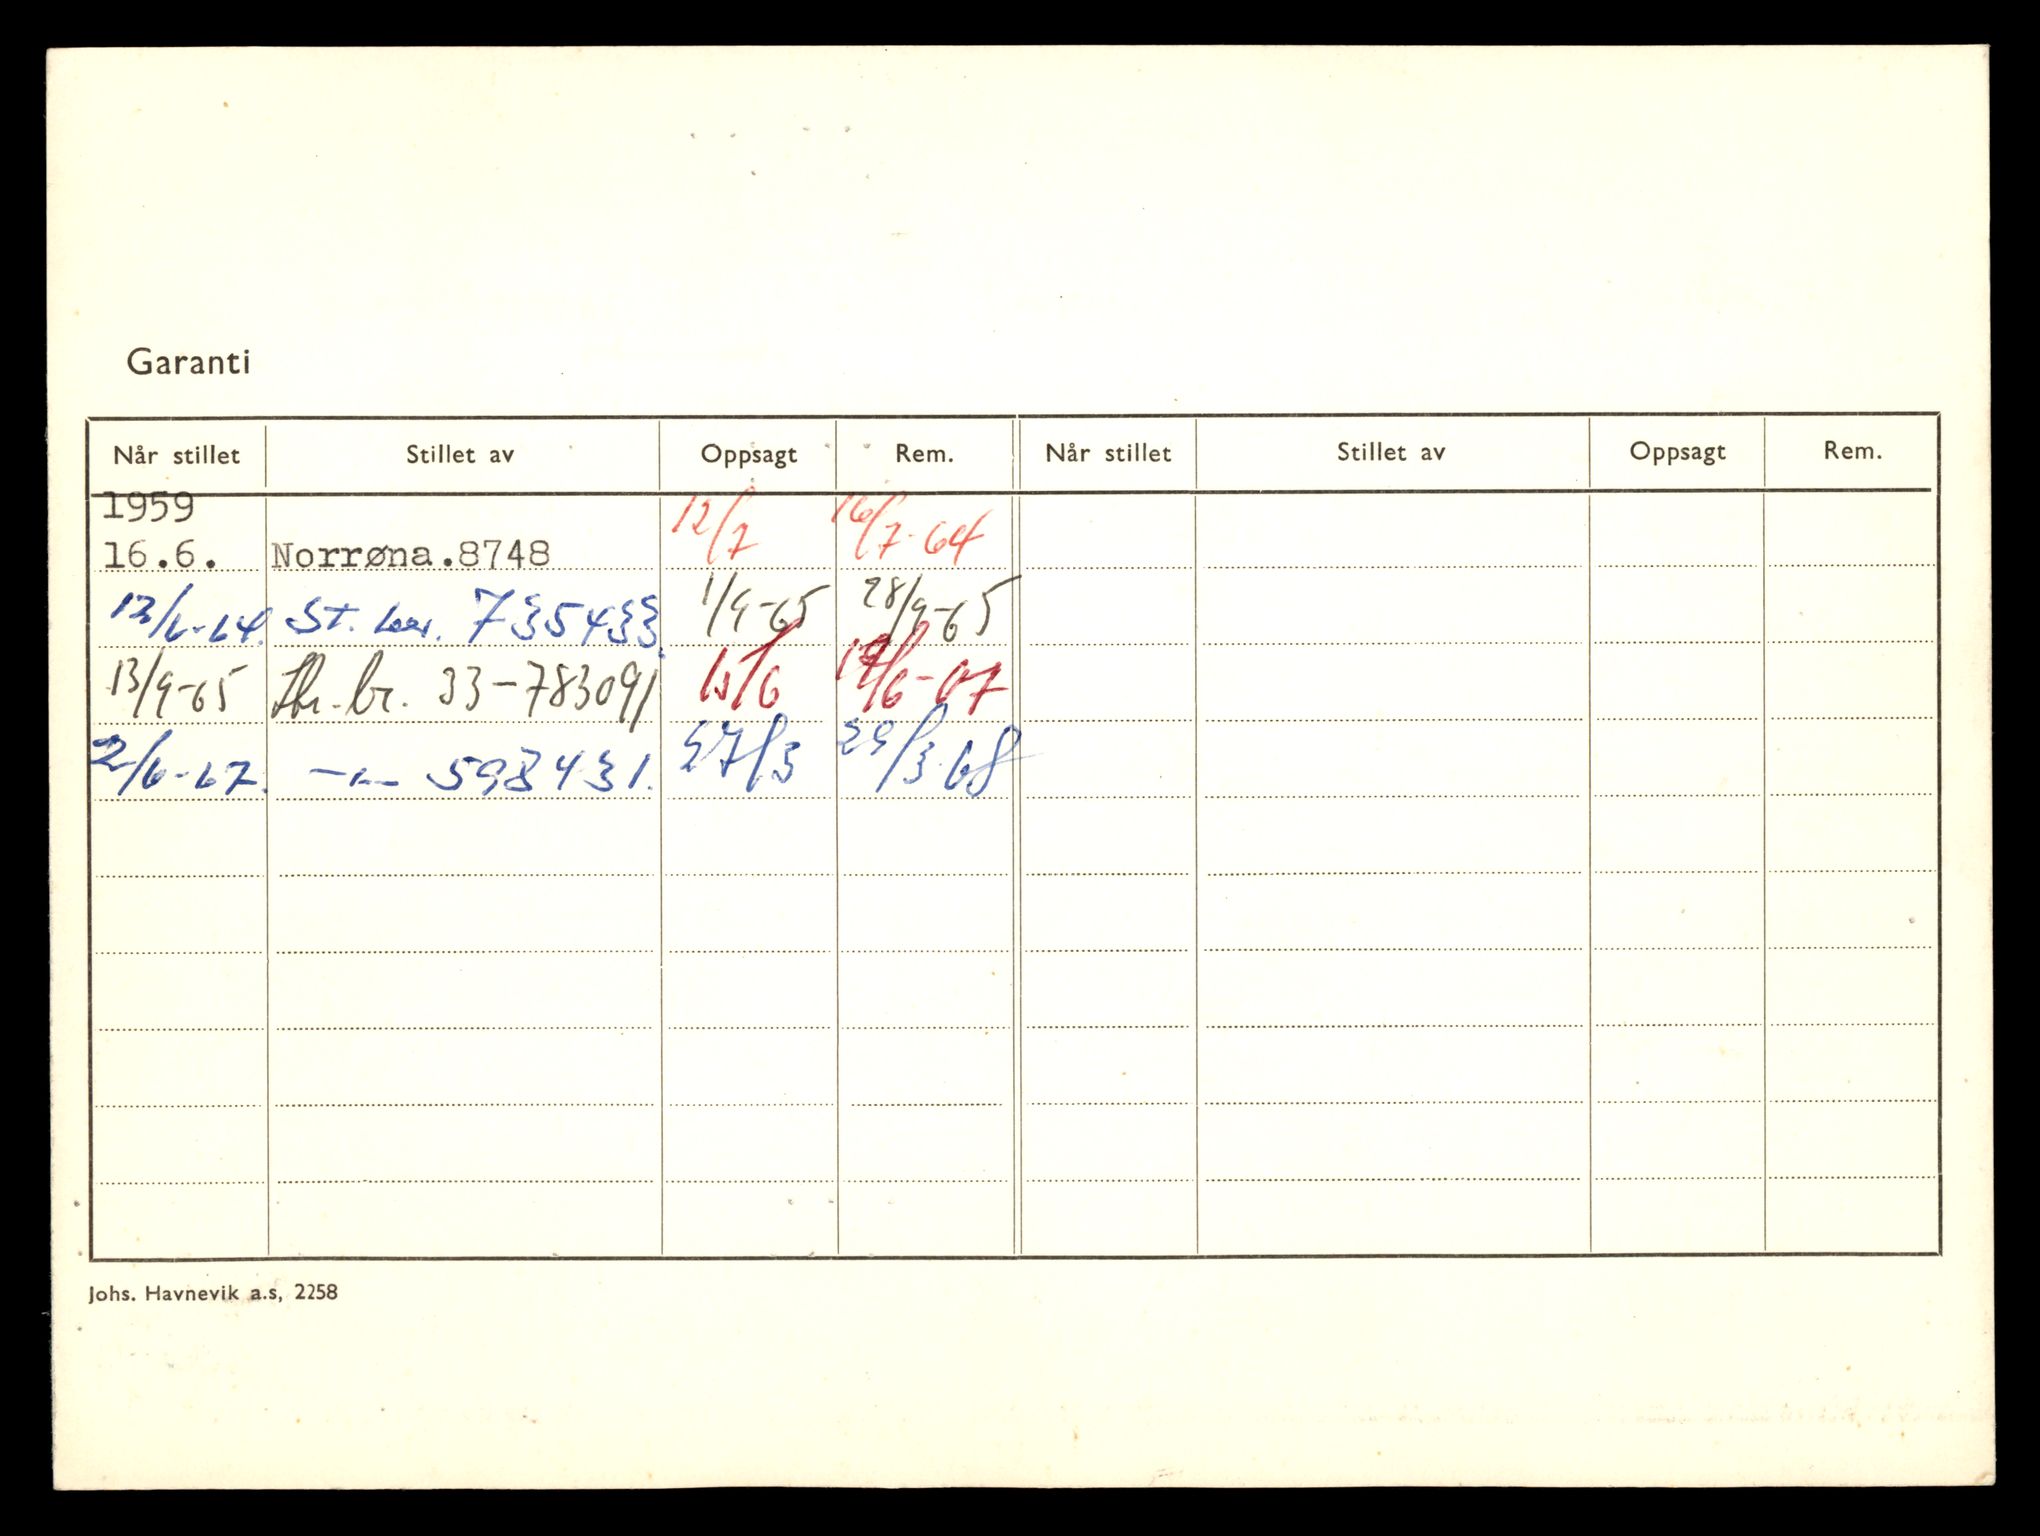 Garanti
Når stillet Stillet av Oppsagt Rem. Når stillet Stillet av Oppsagt Rem.
1959
16.6. Norrøna.8748 12/7 16/7-64
12/6-64. St. br. 735433. 1/9-65 28/9-65
13/9-65 br. 33-783091 15/6 19/6-67
2/6-67. -"- 598431. 27/3 29/3-68
Johs. Havnevik a.s, 2258